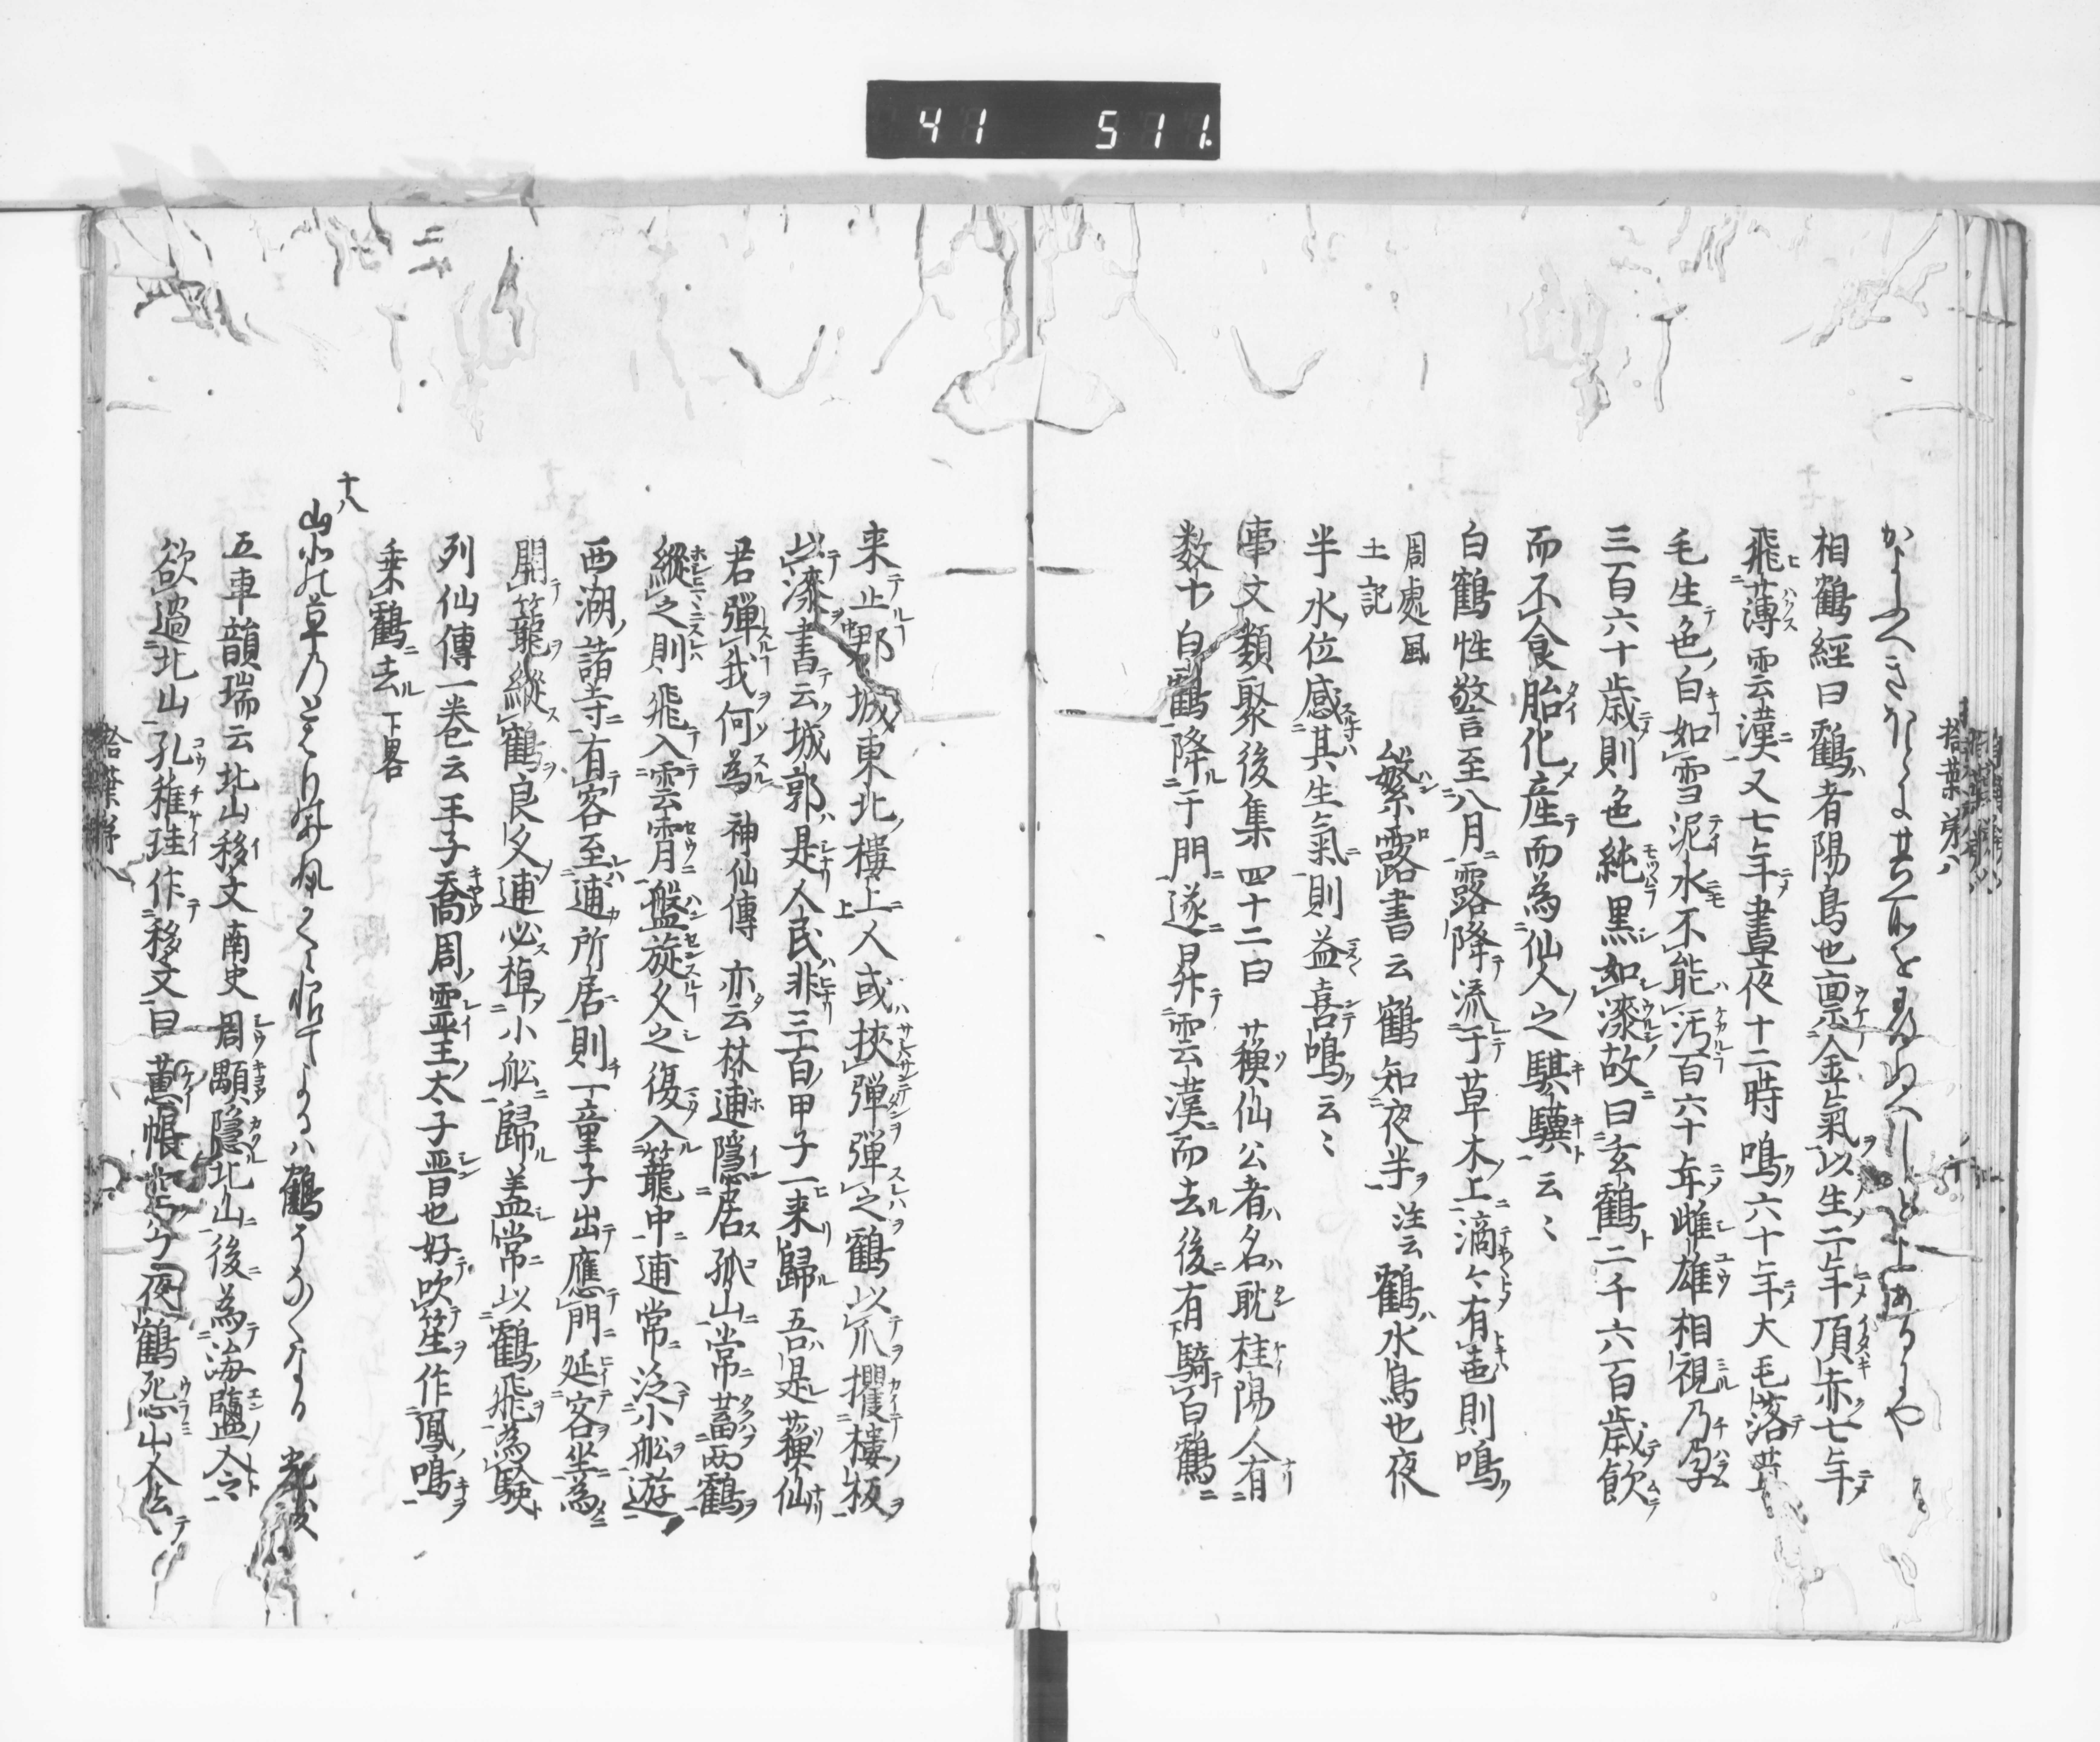 41 511
拾葉第八
かよふへきほとに其所を
相鶴經曰鶴者陽鳥也禀金氣以生二年頂赤七年
飛薄雲漢又七年晝夜十二時鳴六十年大毛落
毛生色白如雪泥水不能汚百六十年雌雄相視乃孕
三百六十歳則色純黒如漆故曰玄鶴二千六百歳飲
而不食胎化産而為仙人之騏驥云〻
白鶴性警至八月露降流于草木上滴々有音則鳴
周處風
土記
繁露書云鶴知夜半注云鶴水鳥也夜
半水位感其生氣則益喜鳴云〻
事文類聚後集四十二曰 蘓仙公者名耽桂陽人有
数十白鶴降于門遂昇雲漢而去後有騎白鶴
来止郡城東北樓上人或挾彈彈之鶴以爪攫樓板
以漆書云城郭是人民非三百甲子一来歸吾是蘓仙
君彈我何為 神仙傳 亦云林逋隱居孤山常蓄両鶴
縱之則飛入雲霄盤旋久之復入籠中逋常泛小舩遊
西湖諸寺有客至逋所居則一童子出應門延客坐為
開籠縱鶴良久逋必棹小舩歸盖常以鶴飛為驗
列仙傳一巻云王子喬周霊王太子晋也好吹笙作鳳鳴
乗鶴去 下畧
十八
山
草の
鶴
五車韻瑞云北山移文南史周顒隱北山後為海鹽令
欲過北山孔稚珪作移文曰蕙帳空兮夜鶴怨山人去
拾葉